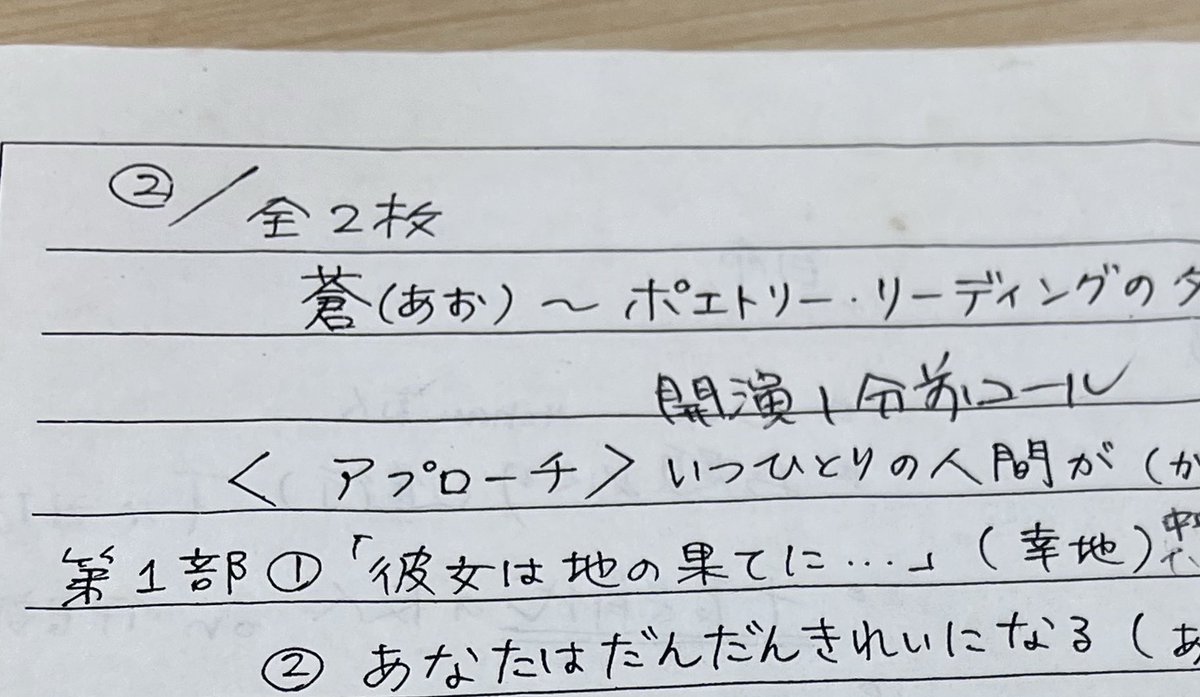 ②/全2枚
蒼(あお)～ポエトリー・リーディングの
開演1分前コール
＜アプローチ＞いつひとりの人間が(か
第1部①「彼女は地の果てに…」(幸地)
②あなたはだんだんきれいになる(あ